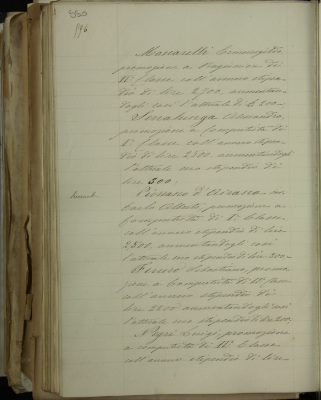 596
Monarelli Ermenegildo
promozione a Ragioniere di
IIª classe coll'annuo stipen-
dio di lire 2,700, aumentan-
dogli così l'attuale di £ 200.
Serralunga Alessandro,
promozione a Computista di
Iª classe coll'annuo stipen-
dio di lire 2500, aumentandogli
l'attuale suo stipendio di
lire 300;
Carlo Alberto, promozione a
Computista di Iª classe
coll'annuo stipendio di lire
2500, aumentandogli così
l'attuale suo stipendio di lire 300.
Sebastiano, promo-
zione a Computista di IIª classe
coll'annuo stipendio di
lire 2200 aumentandogli così
l'attuale suo stipendio di £ 200.
Negri Luigi promozione
a computista di IIª classe
coll'annuo stipendio di lire